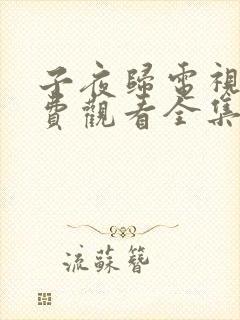 子夜歸電視
費觀看全集
流蘇簪